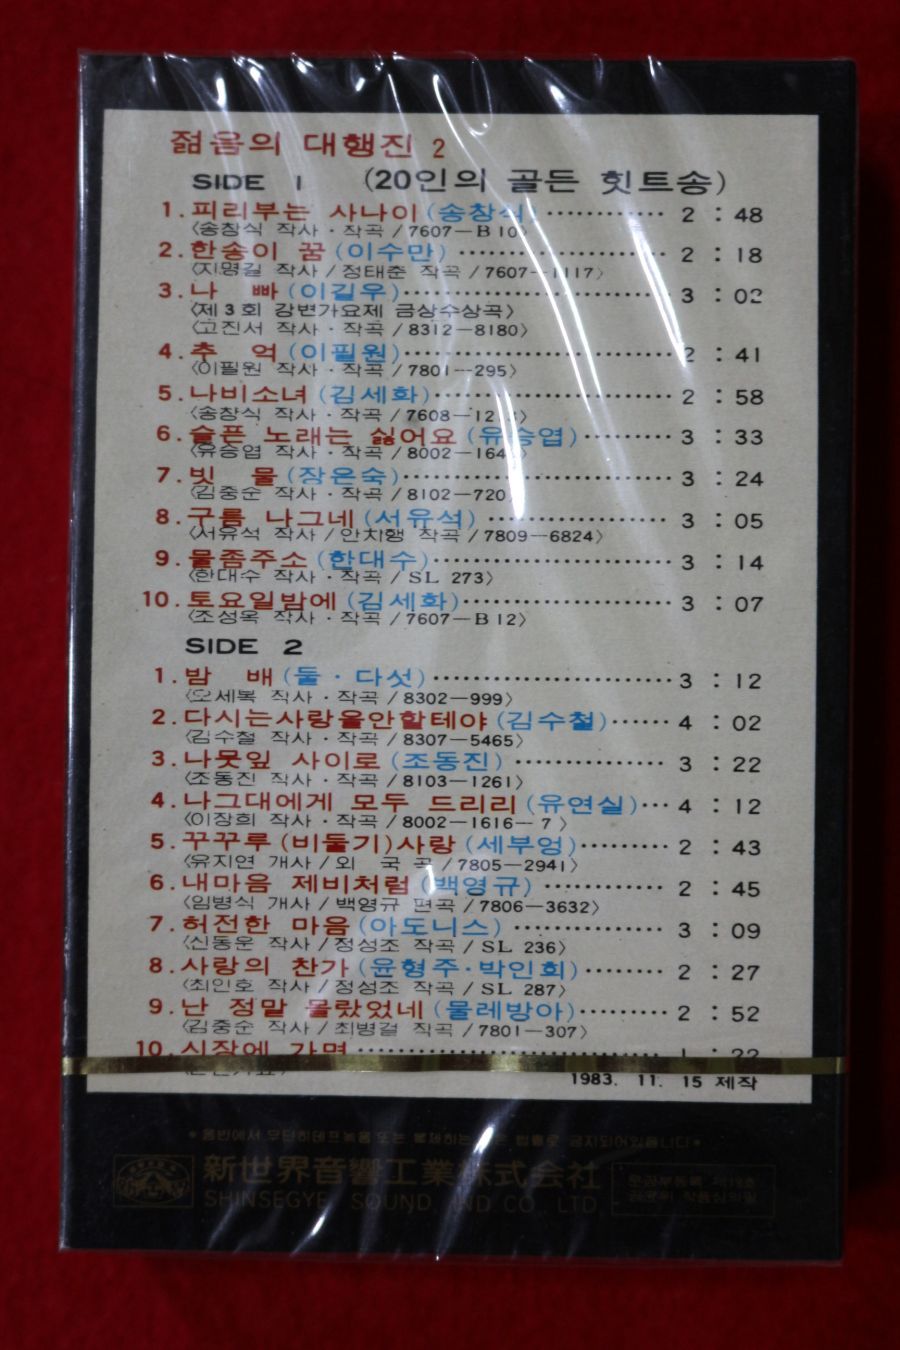 젊음의 대행진 2
SIDE 1 (20인의 골든 힛트송)
1. 피리부는 사나이 (송창식) ············ 2 : 48
〈송창식 작사 · 작곡 / 7607-B 10〉
2. 한송이 꿈 (이수만) ···················· 2 : 18
〈지명길 작사 / 정태춘 작곡 / 7607-1117〉
3. 나 빠 (이길우) ························ 3 : 02
〈제 3 회 강변가요제 금상수상곡〉
〈고진서 작사 · 작곡 / 8312-8180〉
4. 추 억 (이필원) ························ 2 : 41
〈이필원 작사 · 작곡 / 7801-295〉
5. 나비소녀 (김세화) ···················· 2 : 58
〈송창식 작사 · 작곡 / 7608-12
6. 슬픈 노래는 싫어요 (유승엽) ········· 3 : 33
〈유승엽 작사 · 작곡 / 8002-164
7. 빗 물 (장은숙) ························ 3 : 24
〈김중순 작사 · 작곡 / 8102-720〉
8. 구름 나그네 (서유석) ·················· 3 : 05
〈서유석 작사 / 안치행 작곡 / 7809-6824〉
9. 물좀주소 (한대수) ······················ 3 : 14
〈한대수 작사 · 작곡 / SL 273〉
10. 토요일밤에 (김세화) ··················· 3 : 07
〈조성옥 작사 · 작곡 / 7607-B 12〉
SIDE 2
1. 밤 배 (둘 · 다섯) ······················ 3 : 12
〈오세복 작사 · 작곡 / 8302-999〉
2. 다시는사랑을안할테야 (김수철) ······ 4 : 02
〈김수철 작사 · 작곡 / 8307-5465〉
3. 나뭇잎 사이로 (조동진) ··············· 3 : 22
〈조동진 작사 · 작곡 / 8103-1261〉
4. 나그대에게 모두 드리리 (유연실) ··· 4 : 12
〈이장희 작사 · 작곡 / 8002-1616-7〉
5. 꾸꾸루 (비둘기) 사랑 (세부엉) ········· 2 : 43
〈유지연 개사 / 외 국 곡 / 7805-2941〉
6. 내마음 제비처럼 (백영규) ············ 2 : 45
〈임병식 개사 / 백영규 편곡 / 7806-3632〉
7. 허전한 마음 (아도니스) ··············· 3 : 09
〈신동운 작사 / 정성조 작곡 / SL 236〉
8. 사랑의 찬가 (윤형주·박인희) ········ 2 : 27
〈최인호 작사 / 정성조 작곡 / SL 287〉
9. 난 정말 몰랐었네 (물레방아) ········· 2 : 52
〈김중순 작사 / 최병걸 작곡 / 7801-307〉
10. 시장에 가면 ······························ 1 : 22
1983. 11. 15 제작
* 음반에서 무단히테프녹음 또는 복제하는 법률로 금지되어있읍니다 *
新世界音響工業株式会社
SHINSEGYE SOUND. IND CO. LTD